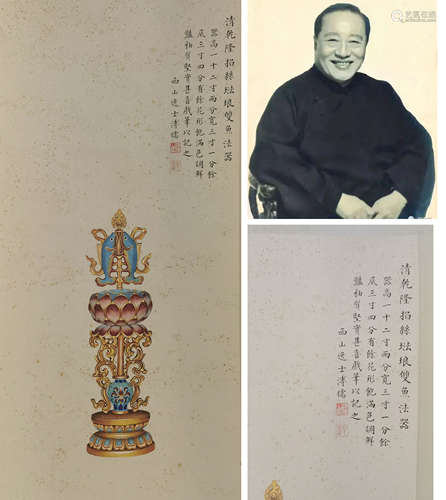 清乾隆掐絲琺瑯雙魚法器
器高一十二寸兩分寬三寸一分餘
底三寸四分有餘花形飽滿色調鮮
豔釉質堅實甚喜戲筆以記之
西山逸士溥儒
艺狐在线
清乾隆掐絲琺瑯雙魚法器
器高一十二寸兩分寬三寸一分餘
底三寸四分有餘花形飽滿色調鮮
豔釉質堅實甚喜戲筆以記之
西山逸士溥儒